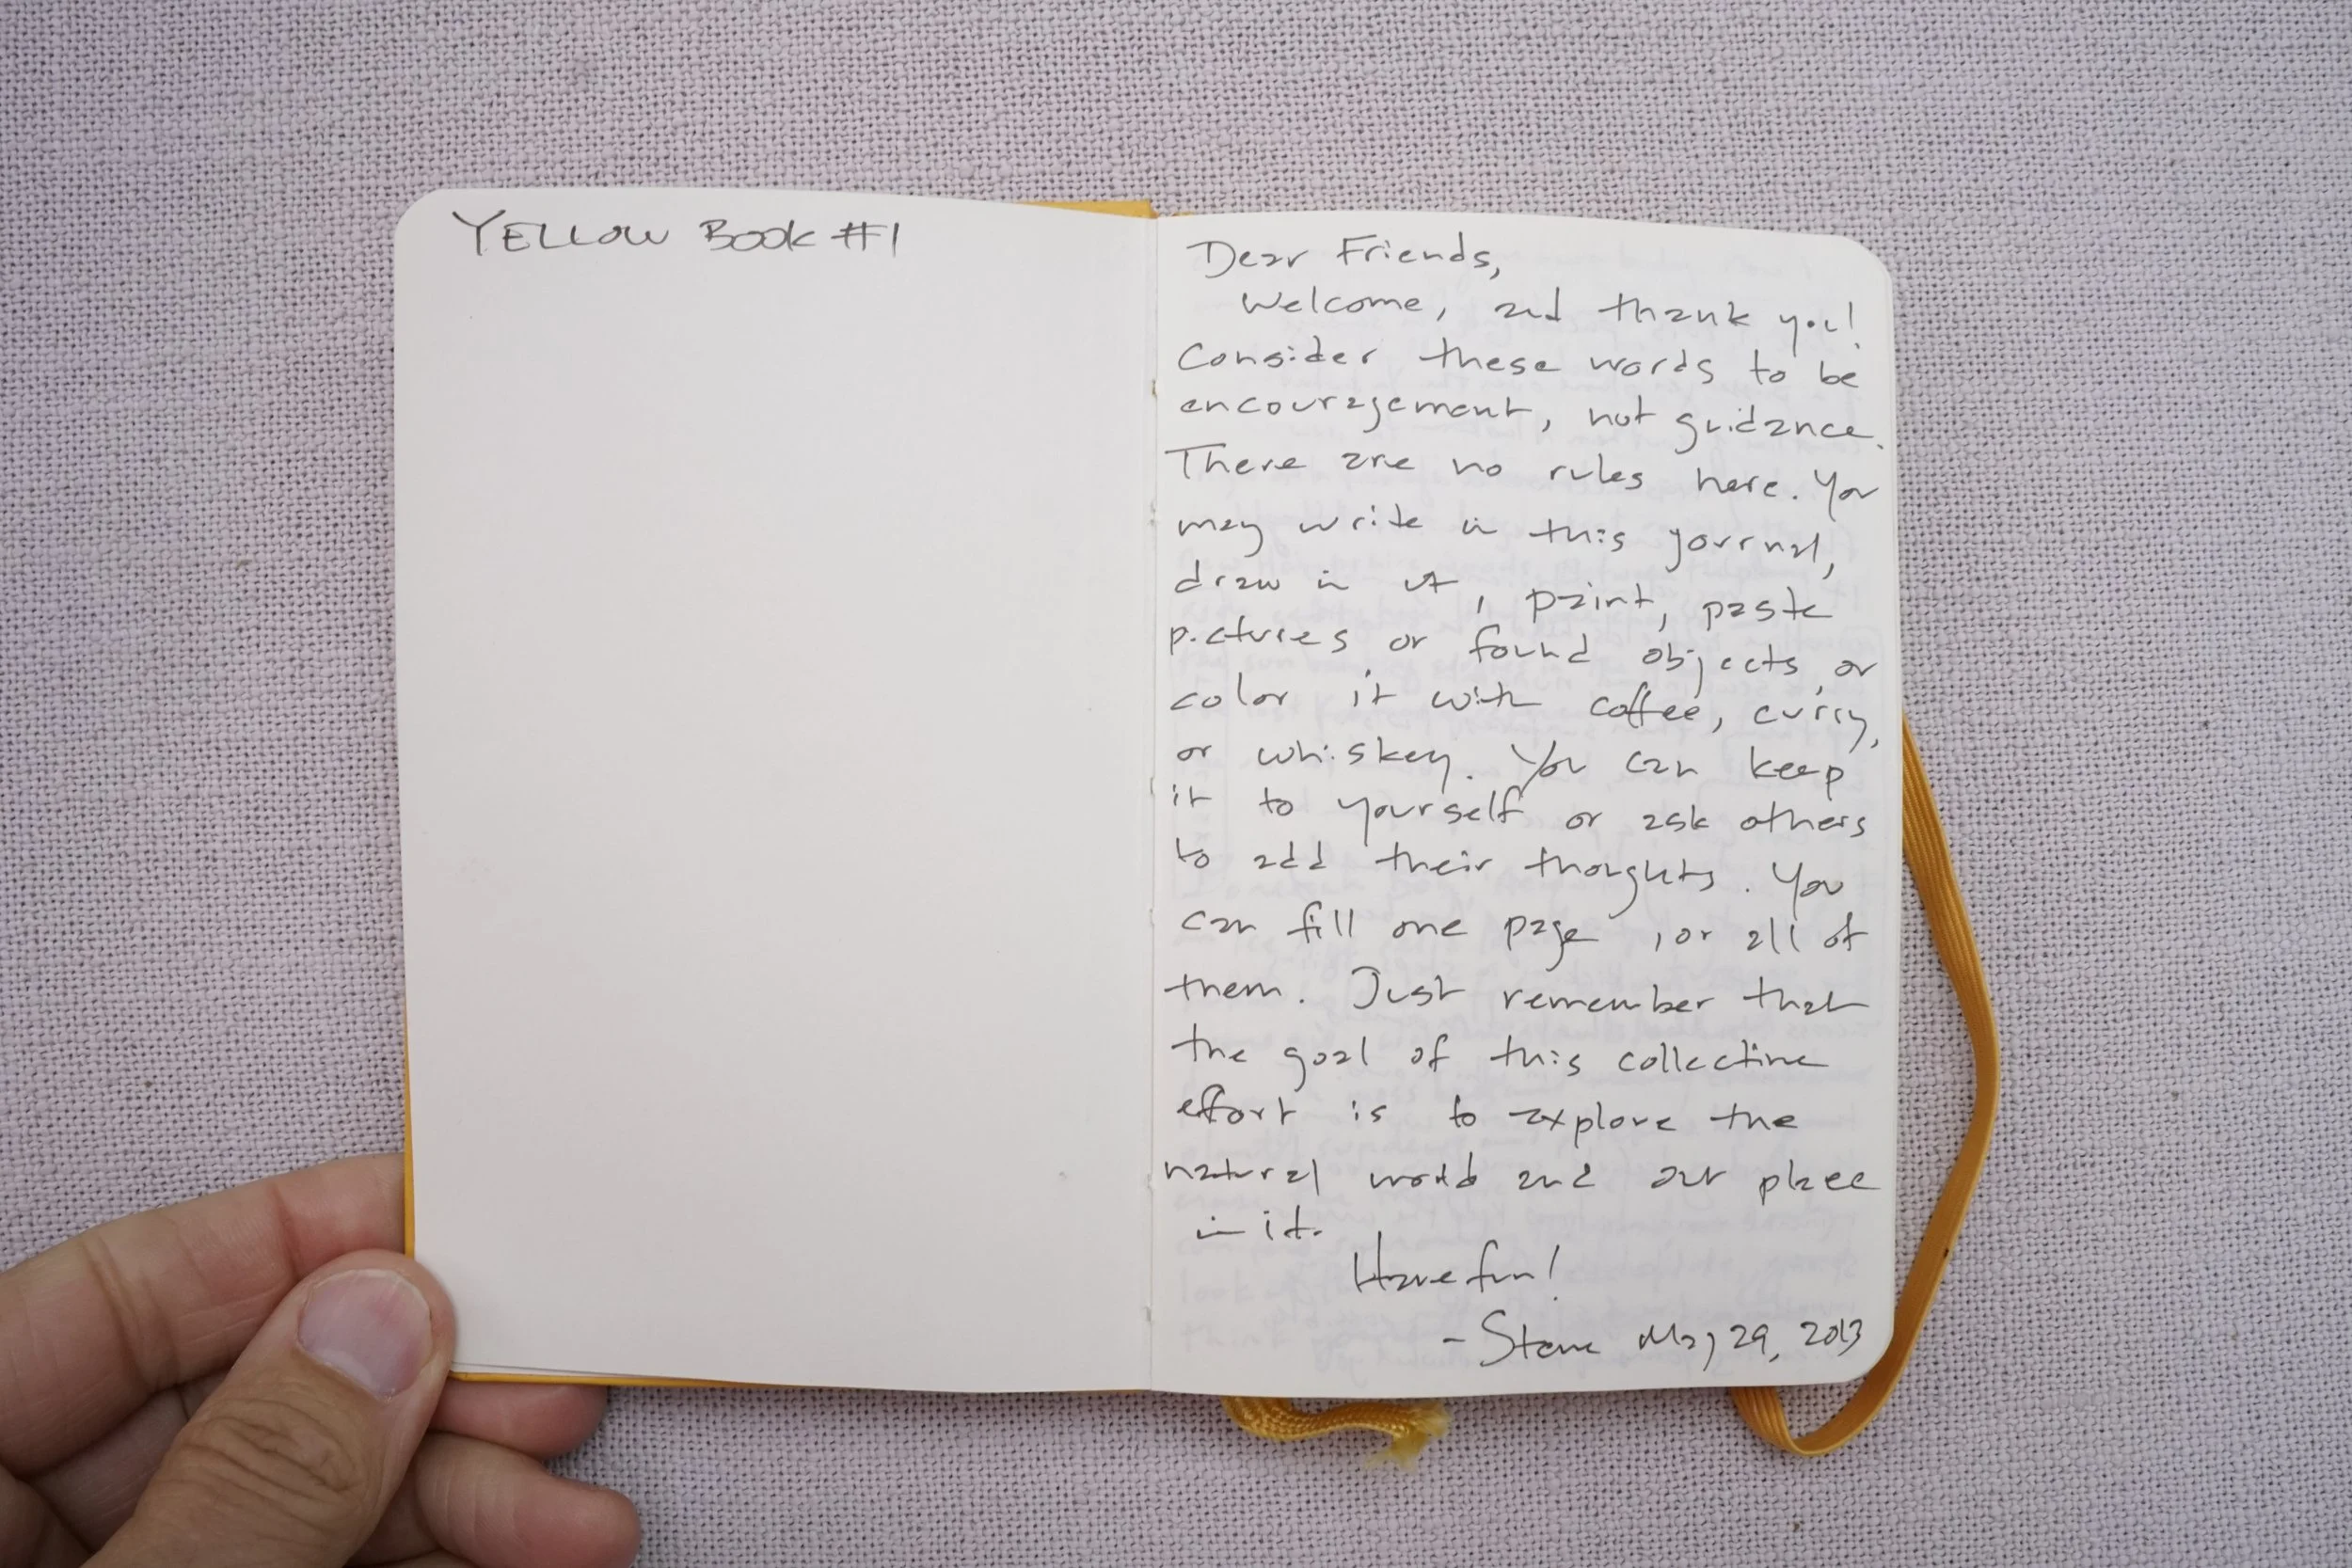 YELLOW BOOK #1
Dear Friends,
Welcome, and thank you!
Consider these words to be
encouragement, not guidance.
There are no rules here. You
may write in this journal,
draw in it, paint, paste
pictures, or found objects, or
color it with coffee, curry,
or whiskey. You can keep
it to yourself or ask others
to add their thoughts. You
can fill one page, or all of
them. Just remember that
the goal of this collective
effort is to explore the
natural world and our place
in it.
Have fun!
- Steve May 29, 2013